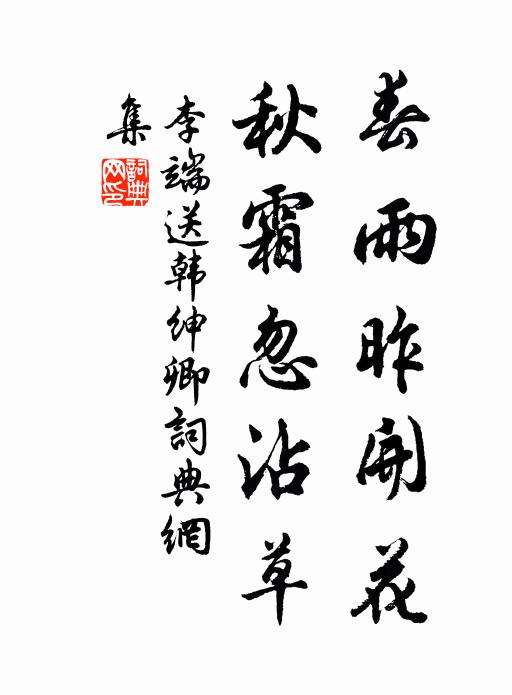 春雨昨開花
秋霜忽沾草
李端送韩绅卿詞典網
集
詞典網印